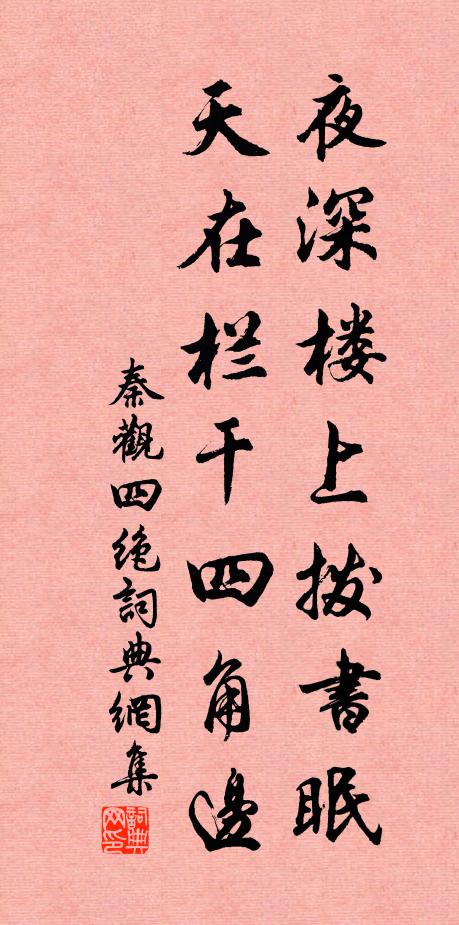 夜深楼上拨书眠
天在栏干四角边
秦觀四绝詞典網集
詞典网印